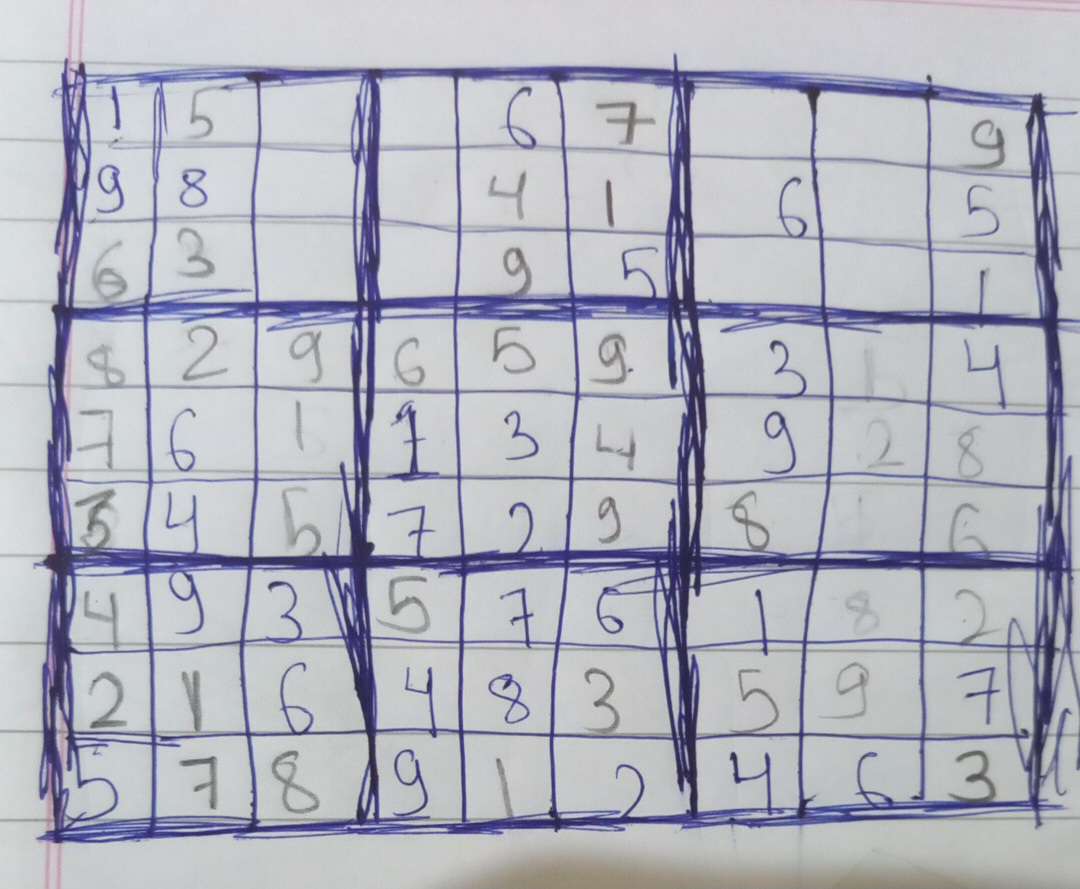 1 5 6 7 9
9 8 4 1 6 5
6 3 9 5 1
8 2 9 6 5 9 3 1 4
7 6 1 1 3 4 9 2 8
4 5 7 2 9 8 1 6
4 9 3 5 7 6 1 8 2
2 1 6 4 8 3 5 9 7
5 7 8 9 1 2 4 6 3